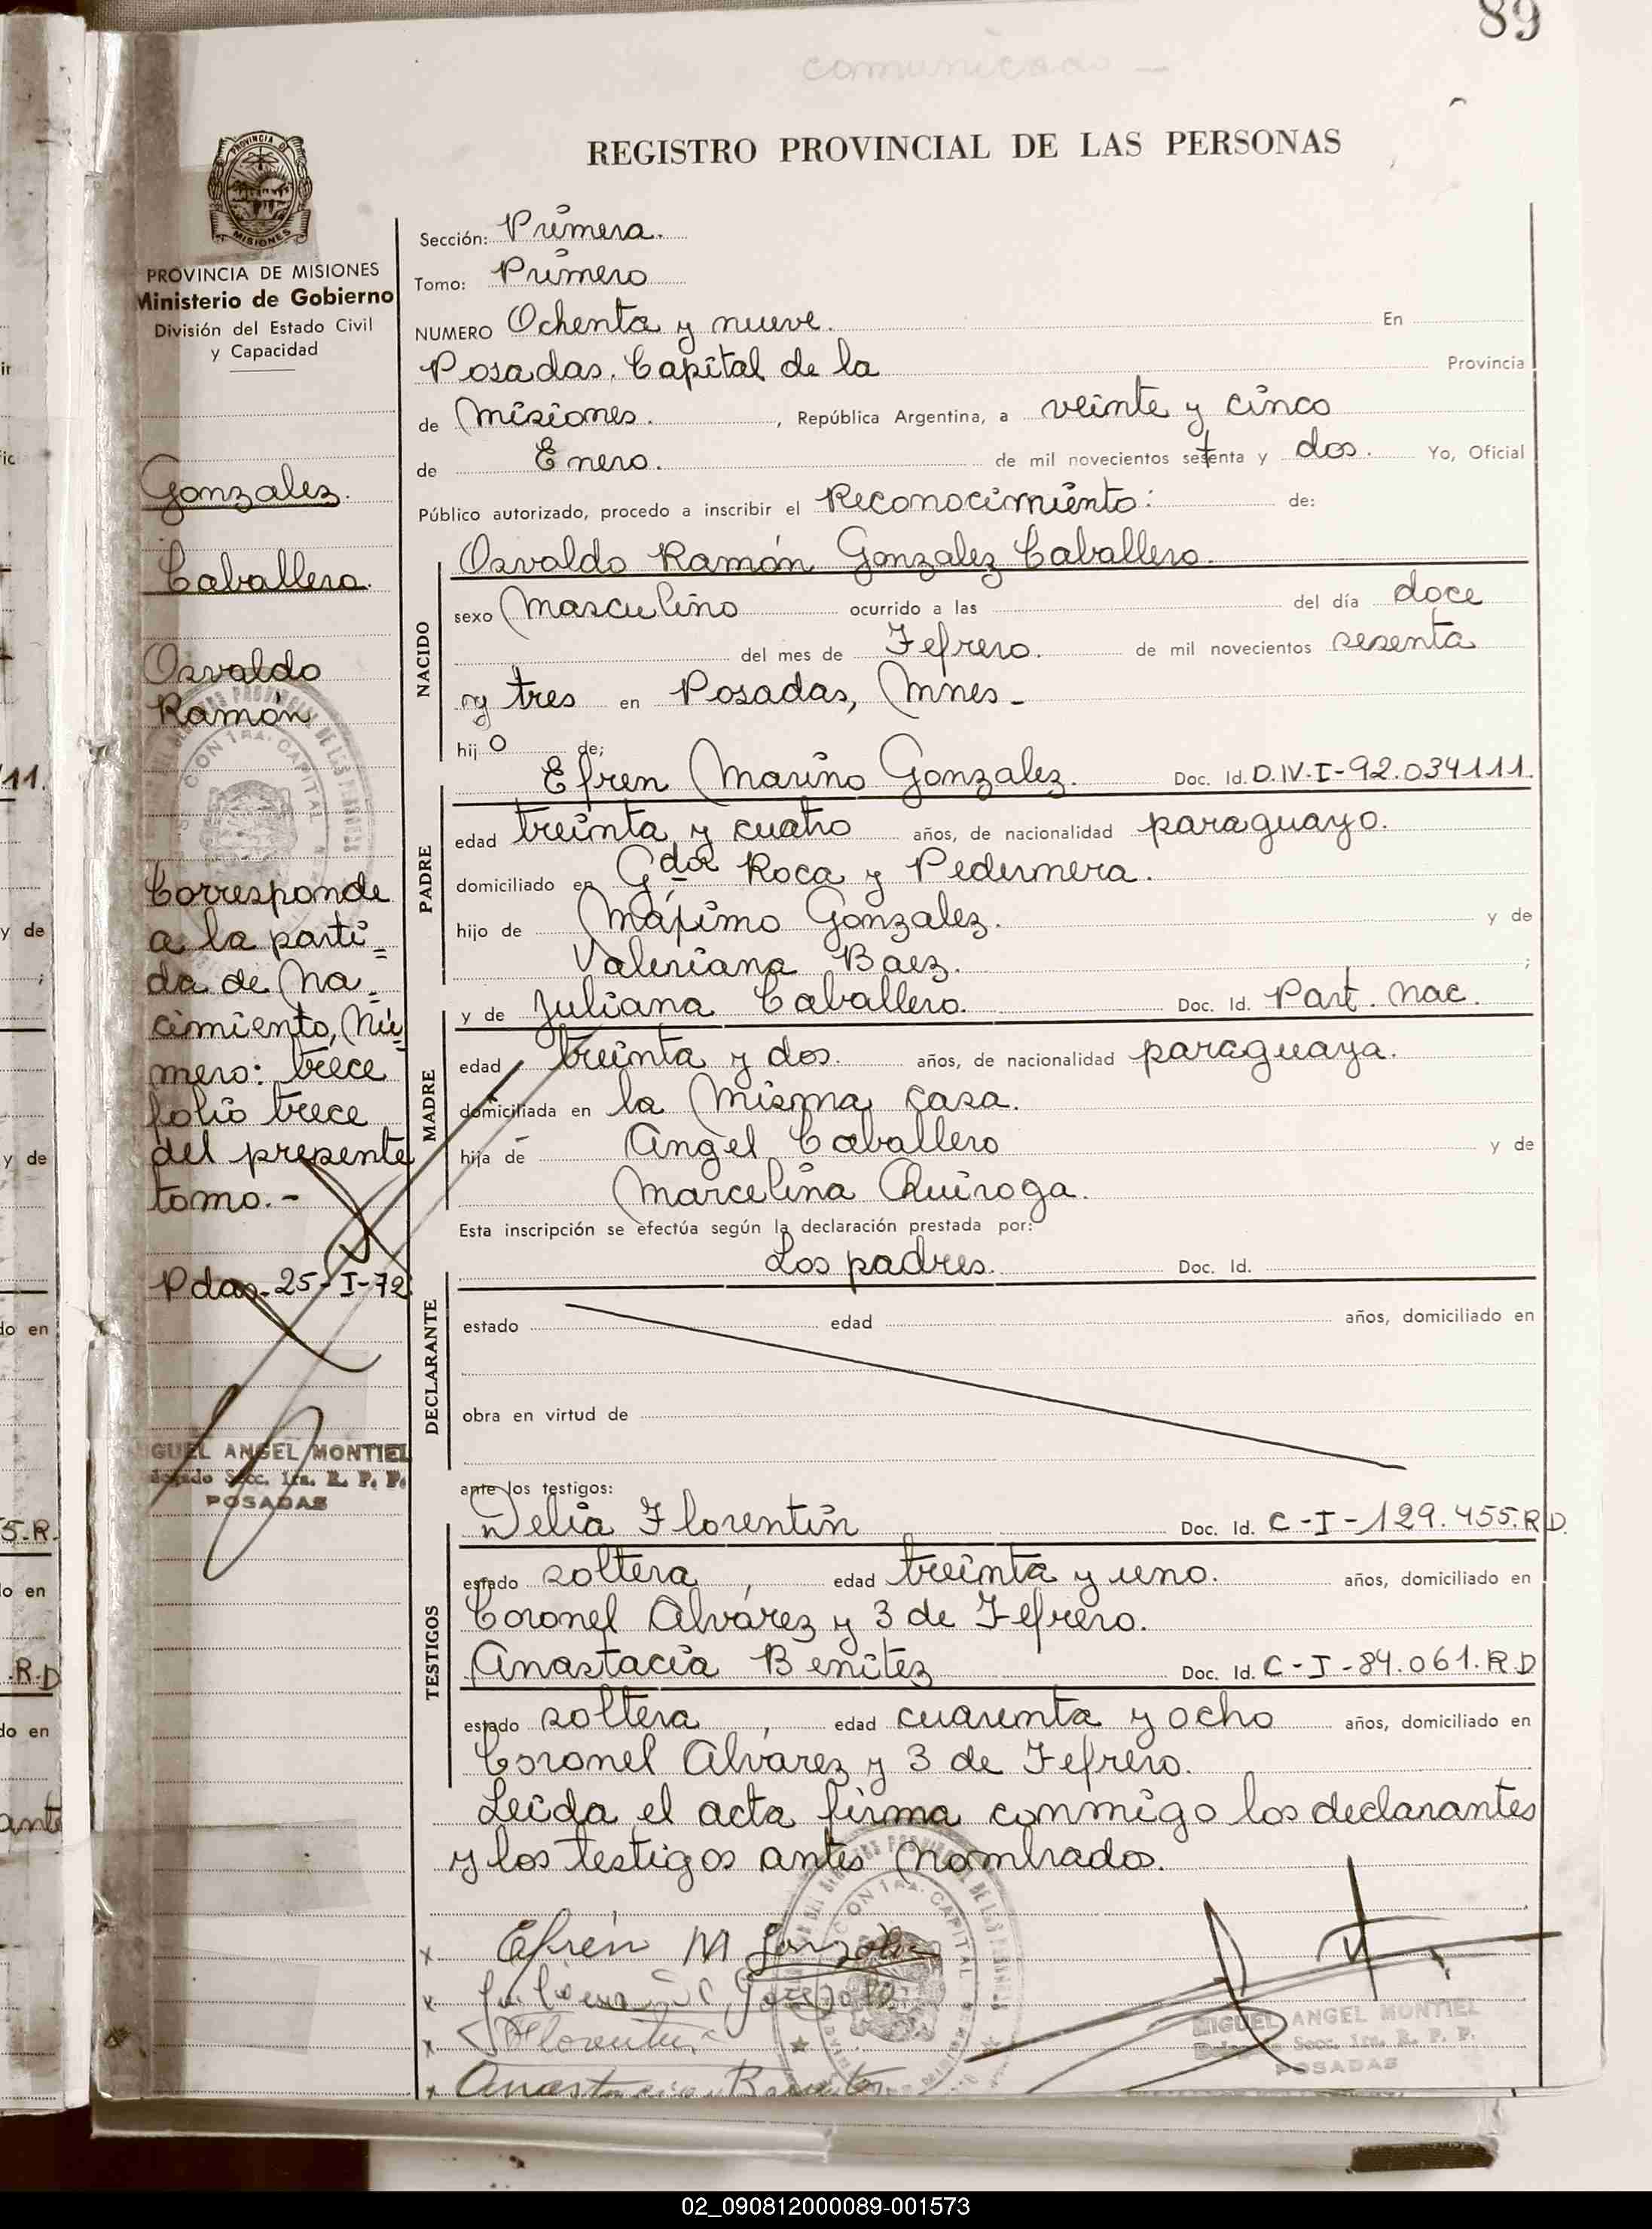 89
comunicado -
PROVINCIA DE
MISIONES
PROVINCIA DE MISIONES
Ministerio de Gobierno
División del Estado Civil
y Capacidad
Gonzalez.
Caballero.
Osvaldo
Ramón
Corresponde
a la parti=
da de Na=
cimiento, Nú=
mero: trece
folio trece
del presente
tomo.-
Pdas-25-I-72
GUEL ANGEL MONTIEL
Secc. 1ra. R. P. P.
POSADAS
REGISTRO PROVINCIAL DE LAS PERSONAS
Sección: Primera.
Tomo: Primero
NUMERO Ochenta y nueve. En
Posadas. Capital de la Provincia
de Misiones. , República Argentina, a veinte y cinco
de Enero. de mil novecientos setenta y dos. Yo, Oficial
Público autorizado, procedo a inscribir el Reconocimiento: de:
NACIDO
Osvaldo Ramón Gonzalez Caballero.
sexo Masculino ocurrido a las del día doce
del mes de Fefrero. de mil novecientos sesenta
y tres en Posadas, Mnes-
hij o de;
PADRE
Efren Marino Gonzalez. Doc. Id. D.IV.I-92.034111.
edad treinta y cuatro años, de nacionalidad paraguayo.
domiciliado en Gdor Roca y Pedernera.
hijo de Máximo Gonzalez. y de
Valeriana Baez. ;
MADRE
y de Juliana Caballero. Doc. Id. Part. Nac.
edad treinta y dos. años, de nacionalidad paraguaya.
domiciliada en la Misma casa.
hija de Angel Caballero y de
Marcelina Quiroga.
Esta inscripción se efectúa según la declaración prestada por:
DECLARANTE
Los padres. Doc. Id.
estado edad años, domiciliado en
obra en virtud de
ante los testigos:
TESTIGOS
Delia Florentín Doc. Id. C-I-129.455.R.D.
estado soltera , edad treinta y uno. años, domiciliado en
Coronel Alvárez y 3 de Fefrero.
Anastacia Benítez Doc. Id. C-I-84.061.R.D
estado soltera , edad cuarenta y ocho años, domiciliado en
Coronel Alvárez y 3 de Fefrero.
Leída el acta firma conmigo los declarantes
y los testigos antes Nombrados.
x Efrén M Gonzalez
x
x Florentín
x Anastacia Benitez
MIGUEL ANGEL MONTIEL
Secc. 1ra. R. P. P.
POSADAS
11.
y de
;
y de
do en
5.R.
do en
.R.D
do en
ante
02_090812000089-001573